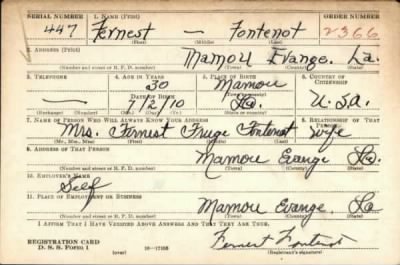 SERIAL NUMBER 1. NAME (Print) ORDER NUMBER
447 Fernest — Fontenot 2366
(First) (Middle) (Last)
2. ADDRESS (Print)
Mamou Evange. La.
(Number and street or R. F. D. number) (Town) (County) (State)
3. TELEPHONE 4. AGE IN YEARS 5. PLACE OF BIRTH 6. COUNTRY OF CITIZENSHIP
30 Mamou
(Town or county)
DATE OF BIRTH
— 7/2/10 La. U.S.A.
(Exchange) (No.) (Mo.) (Day) (Yr.) (State or country)
7. NAME OF PERSON WHO WILL ALWAYS KNOW YOUR ADDRESS 8. RELATIONSHIP OF THAT PERSON
Mrs. Fernest Fruge Fontenot wife
(Mr., Mrs., Miss) (First) (Middle) (Last)
9. ADDRESS OF THAT PERSON
Mamou Evange La.
(Number and street or R. F. D. number) (Town) (County) (State)
10. EMPLOYER'S NAME
Self
11. PLACE OF EMPLOYMENT OR BUSINESS
Mamou Evange. La
(Number and street or R. F. D. number) (Town) (County) (State)
I AFFIRM THAT I HAVE VERIFIED ABOVE ANSWERS AND THAT THEY ARE TRUE.
REGISTRATION CARD
D. S. S. Form 1 (over) Fernest Fontenot
(Registrant's signature)